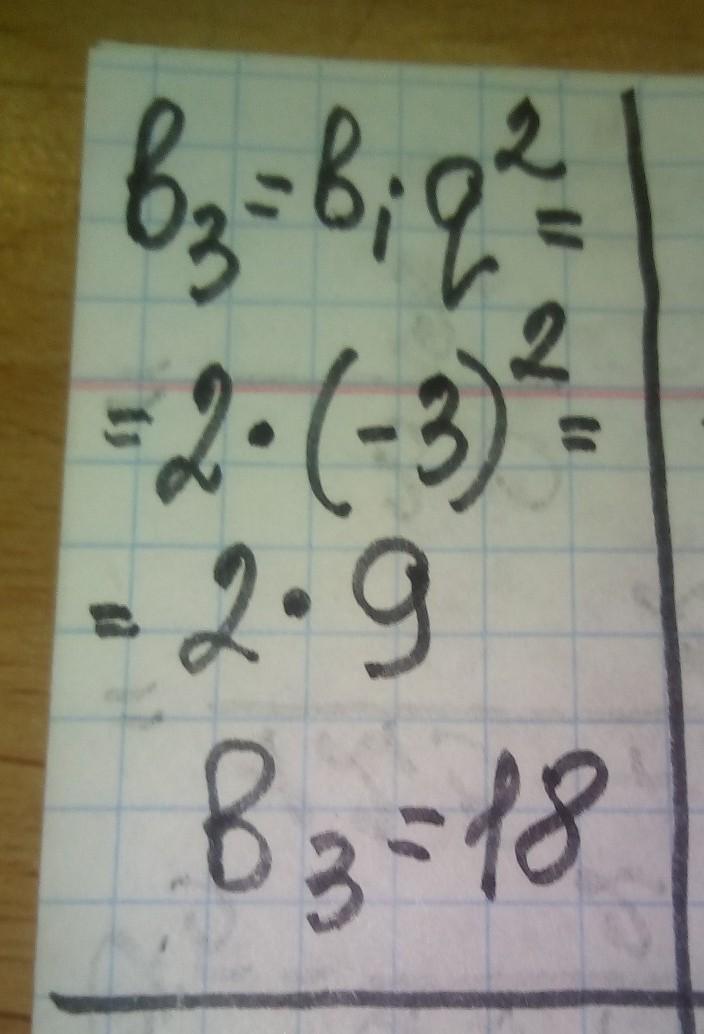 в₃ = в₁q² =
= 2 · (-3)² =
= 2 · 9
в₃ = 18